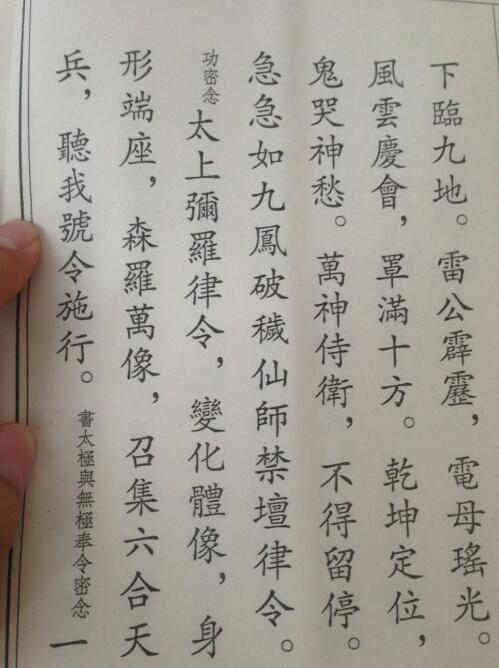 下臨九地。雷公霹靂，電母瑤光。
風雲慶會，罩滿十方。乾坤定位，
鬼哭神愁。萬神侍衛，不得留停。
急急如九鳳破穢仙師禁壇律令。
功密念太上彌羅律令，變化體像，身
形端座，森羅萬像，召集六合天
兵，聽我號令施行。書太極與無極奉令密念一